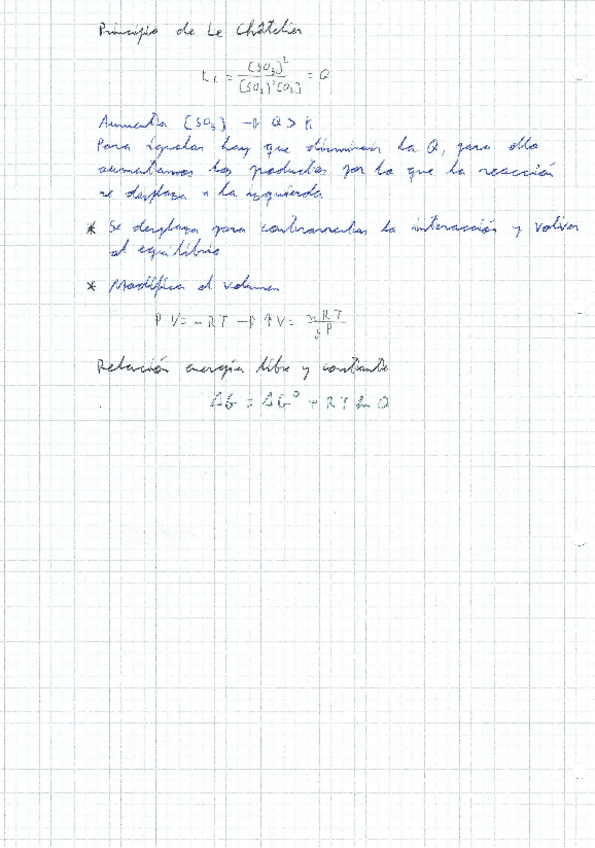 Principio de Le Châtelier
Kc = [SO3]² / [SO2]²[O2] = Q
Aumenta [SO3] → Q > K
Para igualar hay que disminuir la Q, para ello
aumentamos los productos por lo que la reacción
se desplaza a la izquierda
* Se desplaza para contrarrestar la interacción y volver
al equilibrio
* Modifica el volumen
P V = nRT → ↑V = nRT / ↓P
Relación energía libre y constante
ΔG = ΔG° + RT ln Q